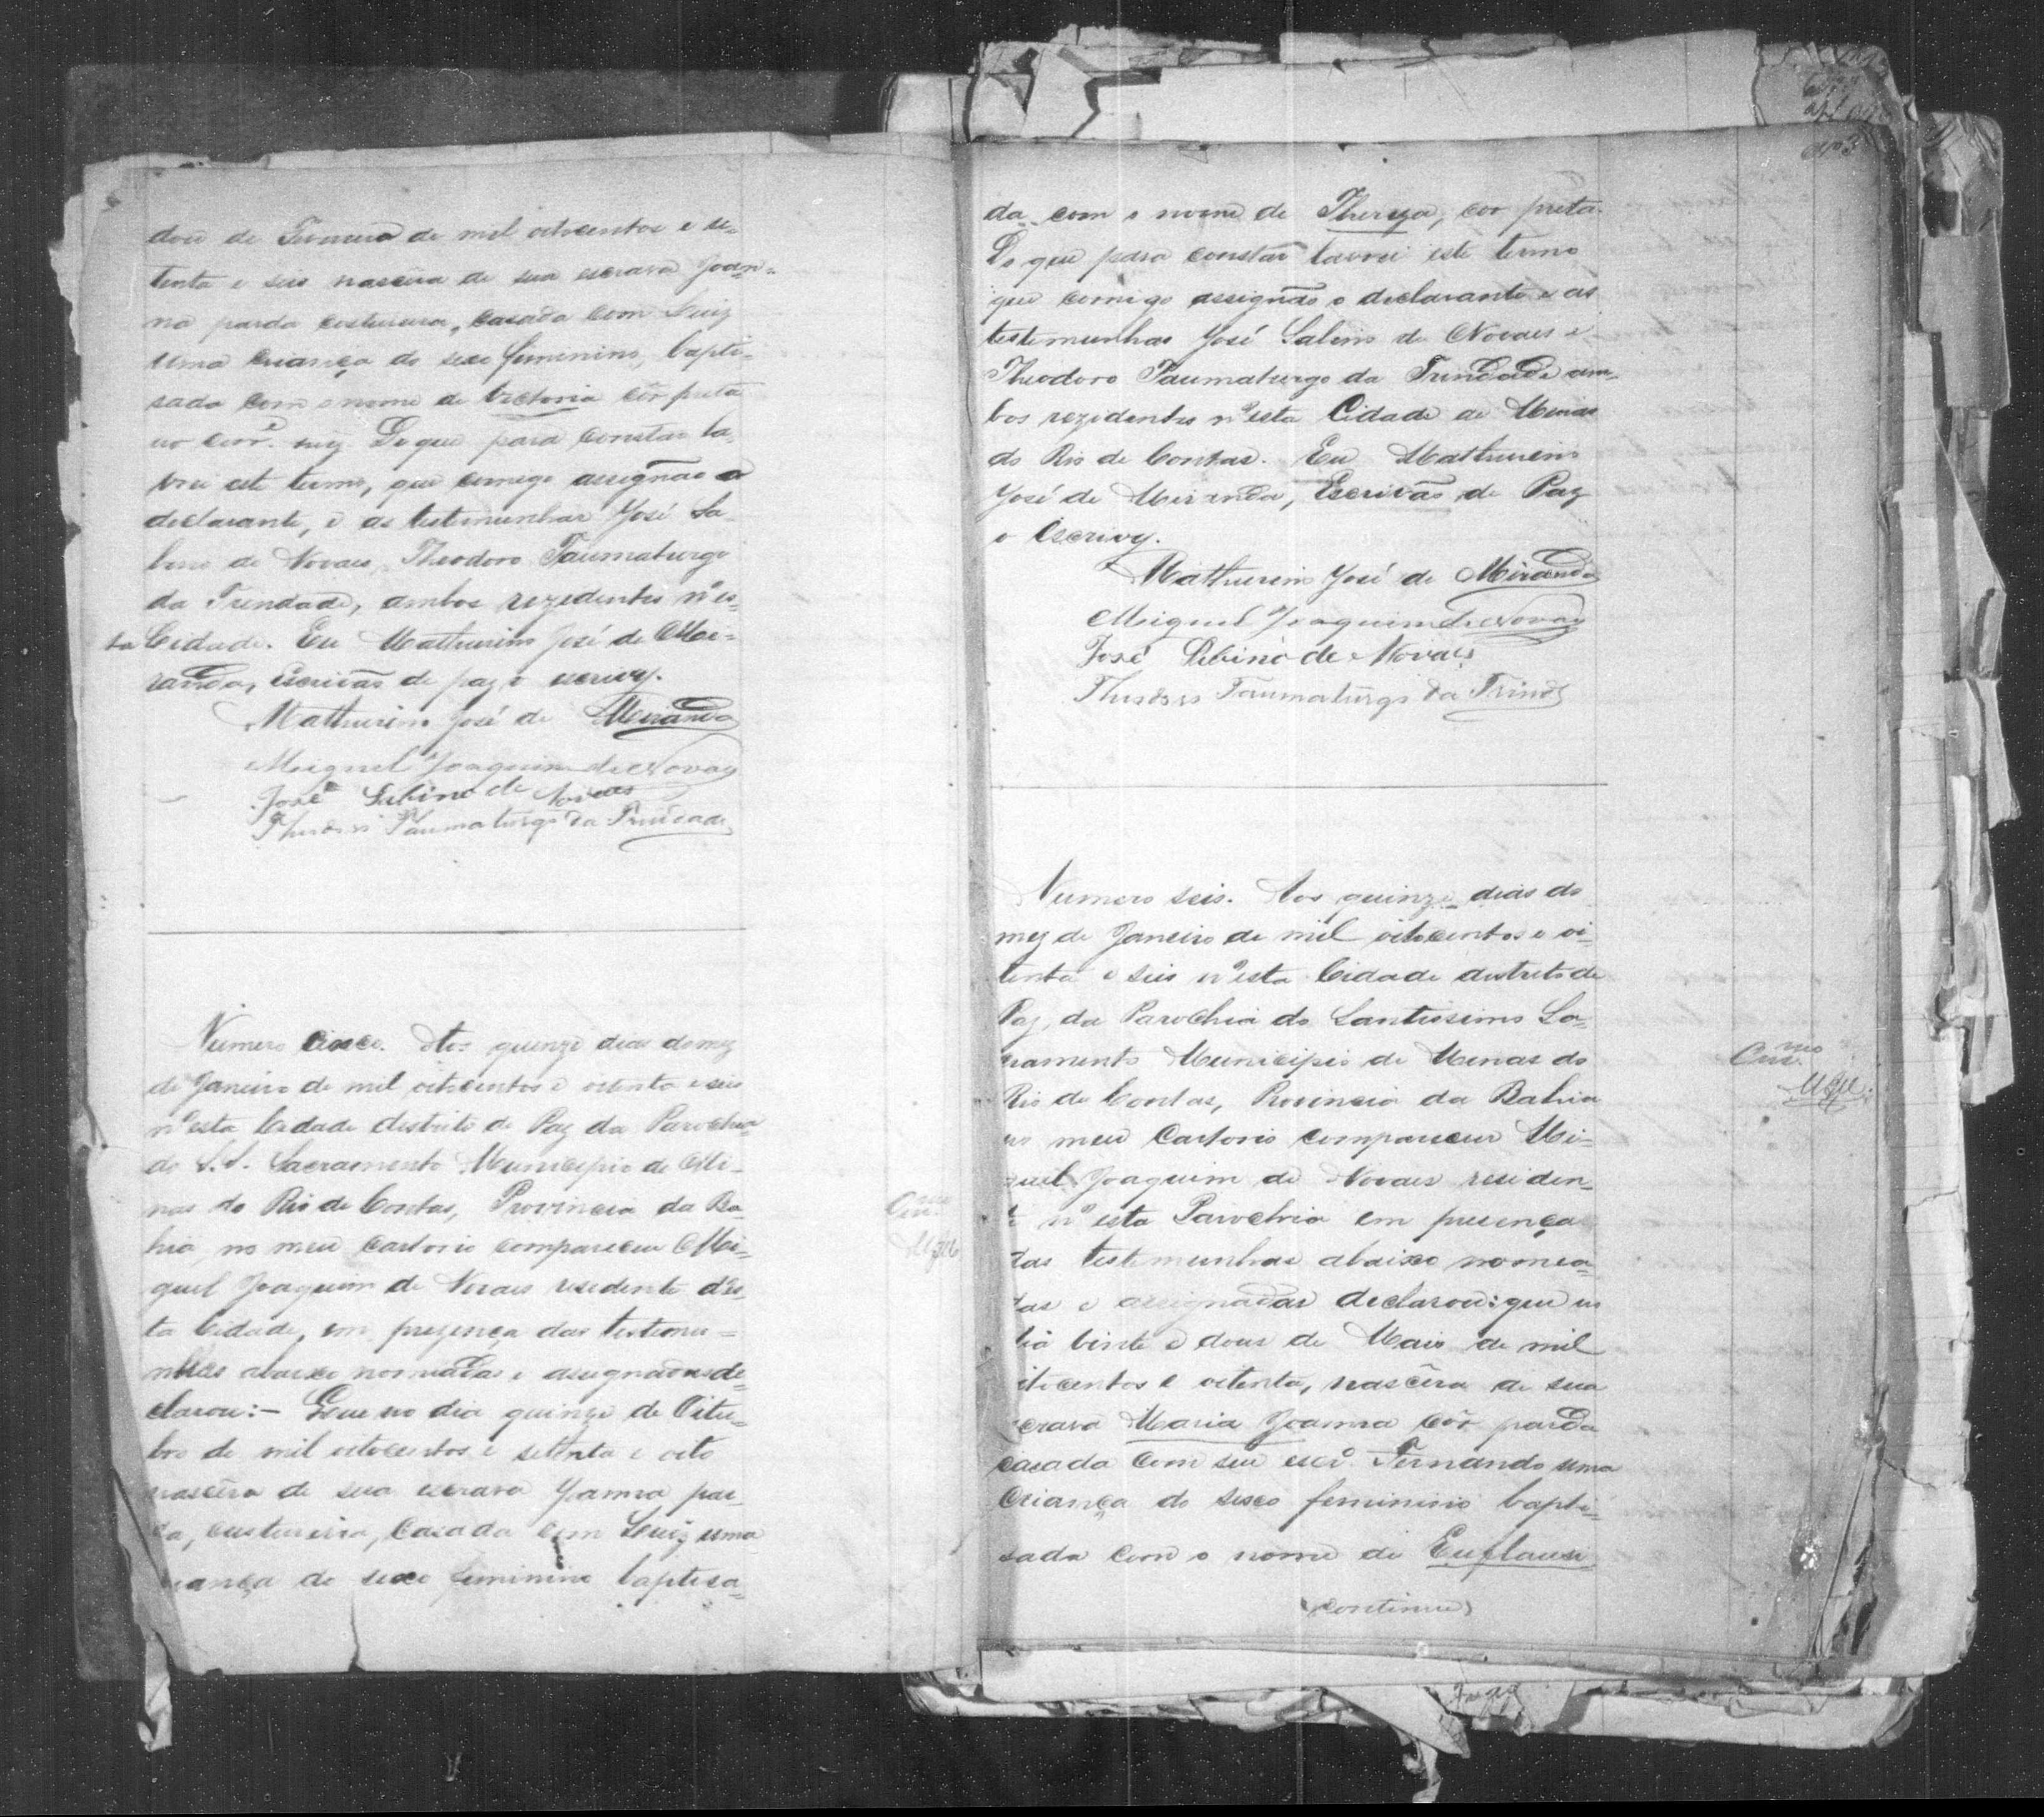 dou de Janeiro de mil oitocentos e se-
tenta e seis nascêra de sua escrava Joan-
na parda costureira, casada com Luiz
uma criança do sexo feminino, bapti-
sada com o nome de Victoria côr preta
Do que para constar la-
vrei este termo, que comigo assignão o
declarante, e as testemunhas José Sa-
bino de Novaes, Theodoro Taumaturgo
da Trindade, ambos rezedentes n'es-
ta Cidade. Eu Mathurino José de Mi-
randa, Escrivão de paz o escrivy.
Mathurino José de Miranda
Miguel Joaquim de Novaes
José Sabino de Novaes
Theodoro Taumaturgo da Trindade
Numero cinco. Aos quinze dias do mez
de Janeiro de mil oitocentos e oitenta e seis
n'esta Cidade distrito de Paz da Parochia
do S.S. Sacramento Municipio de Mi-
nas do Rio de Contas, Provincia da Ba-
hia, no meu cartorio compareceu Mi-
guel Joaquim de Novaes residente d'es-
ta Cidade, em prezença das testemu-
nhas abaixo nomiadas e assignadas de-
clarou:- Que no dia quinze de Oitu-
bro de mil oitocentos e setenta e oito
nascêra de sua escrava Joanna par-
da, custureira, casada com Luiz uma
criança do sexo feminino baptisa-
da com o nome de Thereza, cor preta.
Do que para constar lavrei este termo
que comigo assignão o declarante e as
testemunhas José Sabino de Novaes e
Theodoro Taumaturgo da Trindade am-
bos rezidentes n'esta Cidade de Minas
do Rio de Contas. Eu Mathurino
José de Miranda, Escrivão de Paz
o Escrivy.
Mathurino José de Miranda
Miguel Joaquim de Novaes
José Sabino de Novaes
Theodoro Taumaturgo da Trind
Numero seis. Aos quinze dias do
mez de Janeiro de mil oitocentos e oi-
tenta e seis n'esta Cidade distrito de
Paz, da Parochia do Santissimo Sa-
cramento Municipio de Minas do
Rio de Contas, Provincia da Bahia
no meu Cartorio compareceu Mi-
guel Joaquim de Novaes residen-
te n'esta Parochia em presença
das testemunhas abaixo nomea-
das e assignadas declarou: que no
dia vinte e dous de Maio de mil
oitocentos e oitenta, nascêra de sua
escrava Maria Joanna côr parda
casada com seu escº Fernando uma
Criança do sexo feminino bapti-
sada com o nome de Euflausi
(continua)